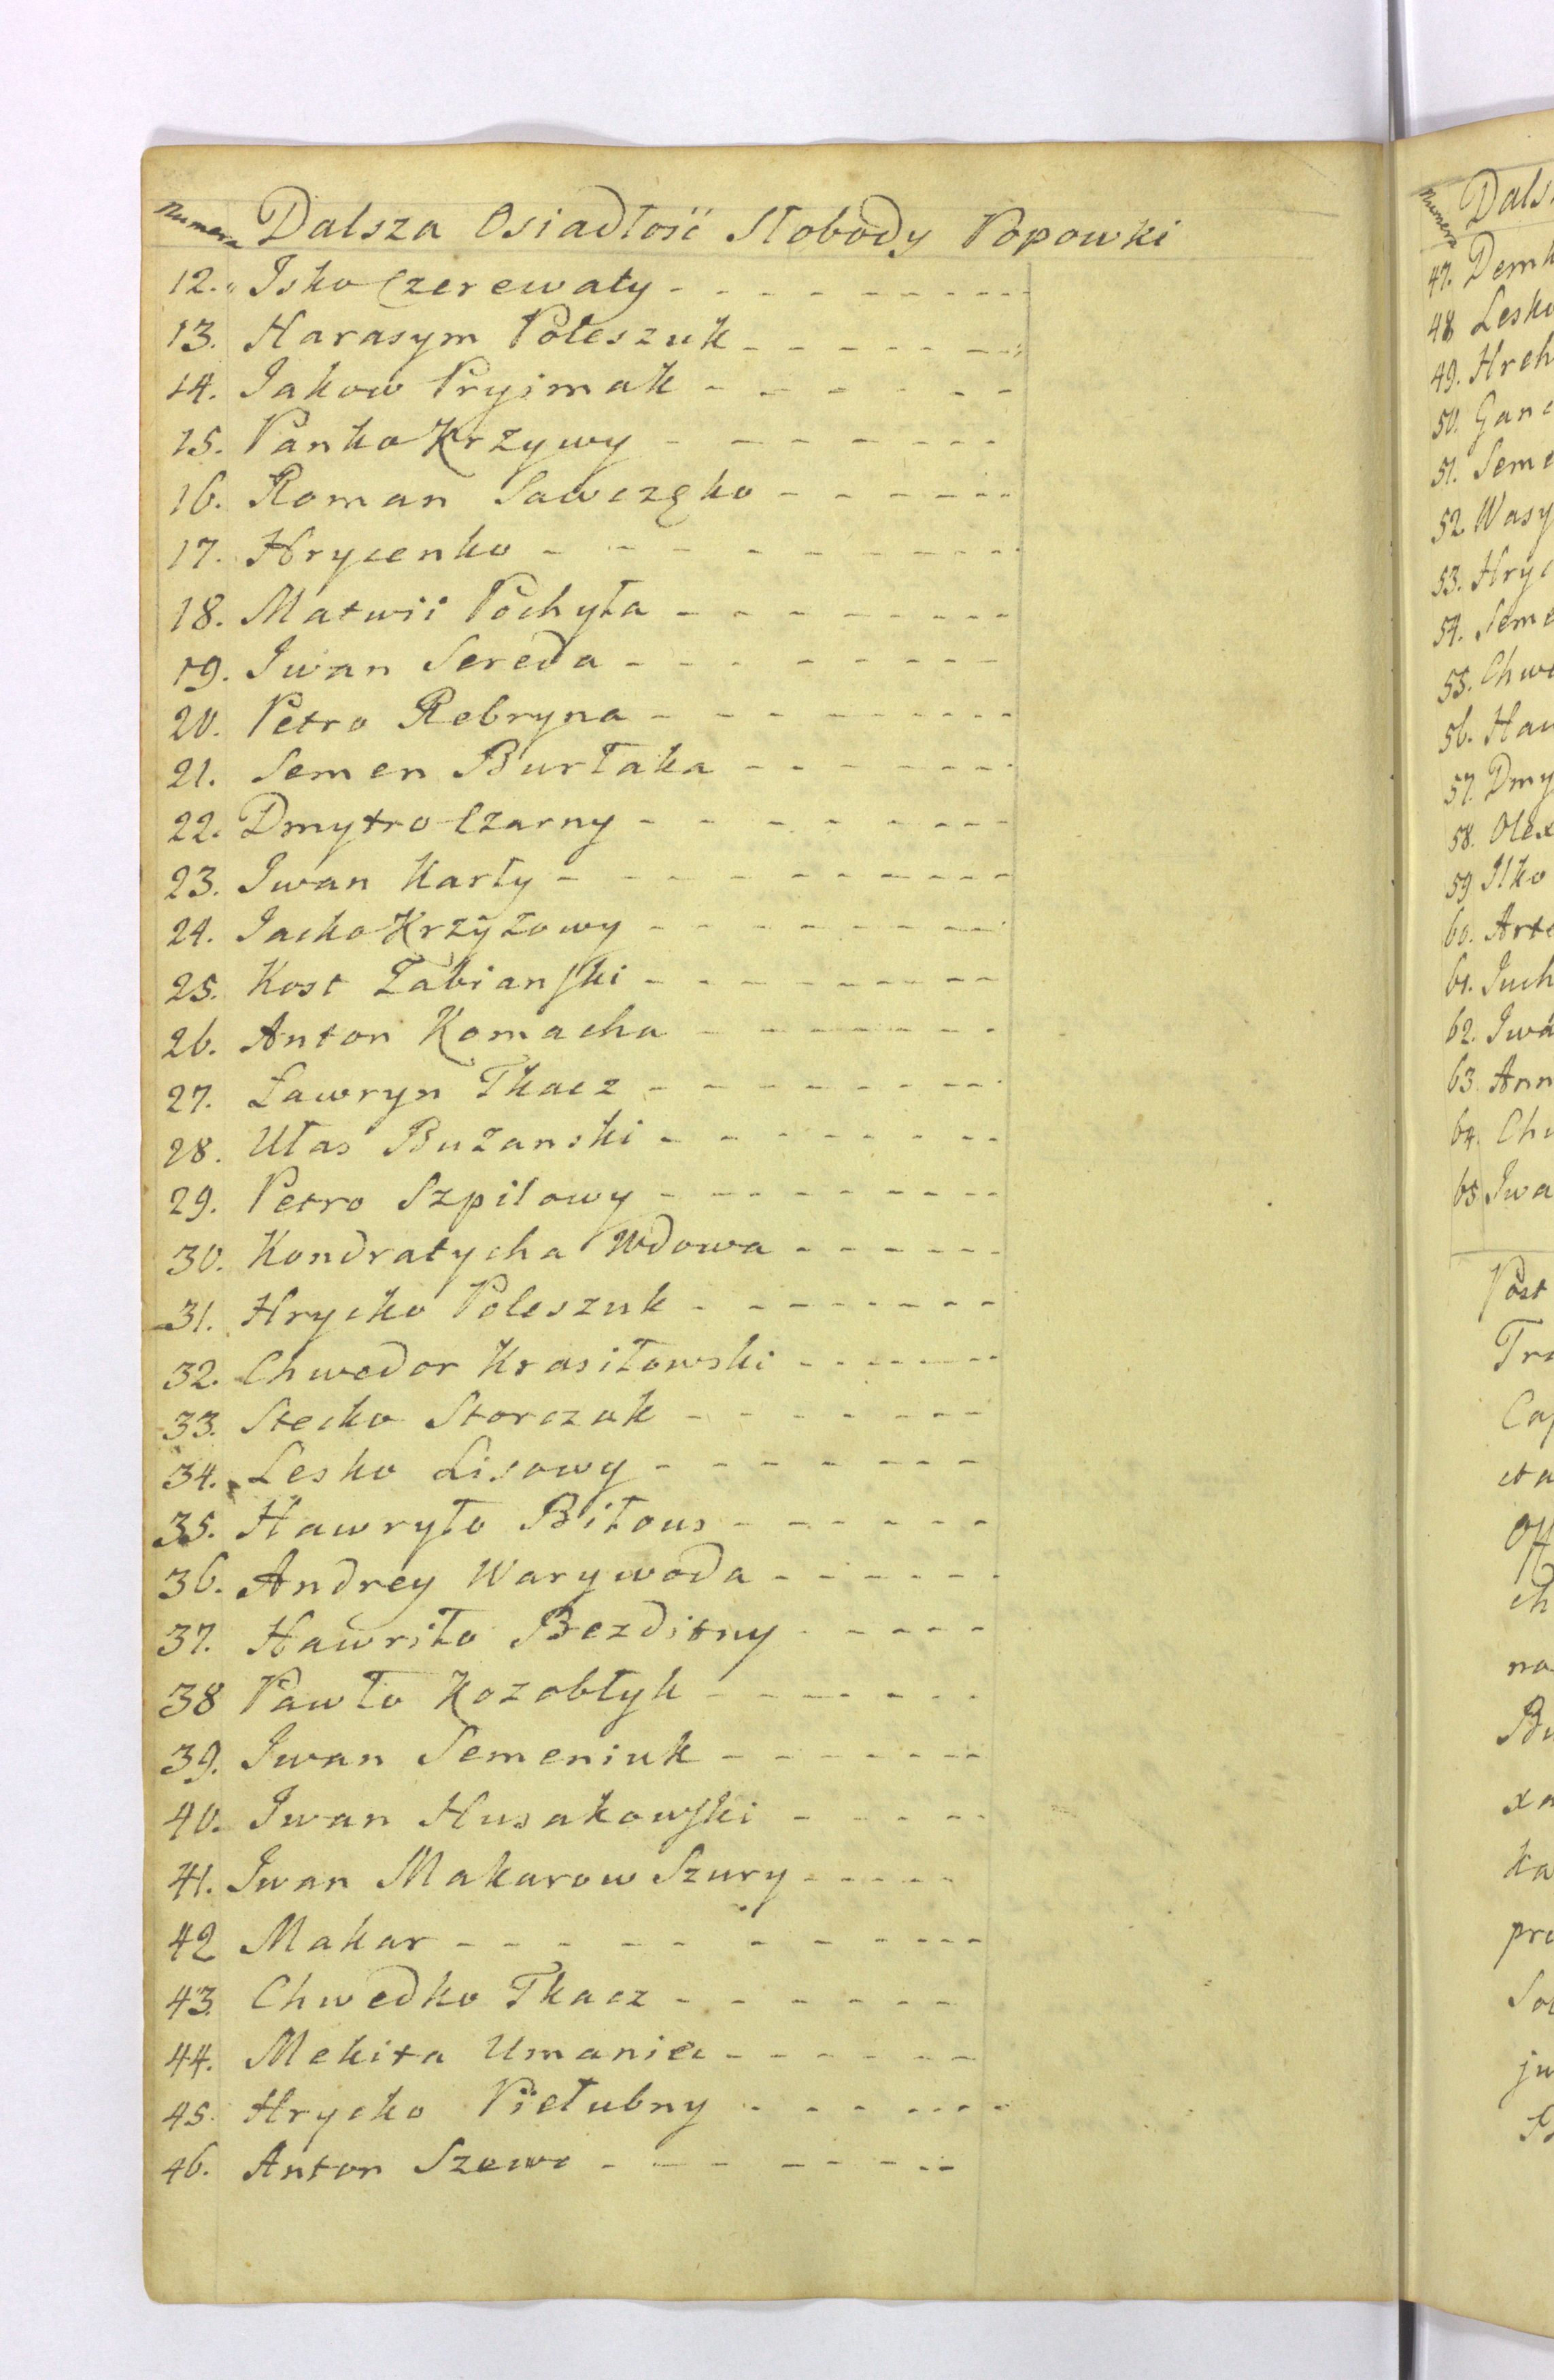 Numera Dalsza Osiadłość Słobody Popowki
12. Isko Czerewaty
13. Harasym Poleszuk
14. Jakow Pryjmak
15. Panko Krzywy
16. Roman Sawczęko
17. Hrycenko
18. Matwii Pochyła
19. Iwan Sereda
20. Petro Rebryna
21. Semen Burłaka
22. Dmytro Czarny
23. Iwan Karły
24. Jacko Krzyżowy
25. Kost Łabianski
26. Anton Komacha
27. Ławryn Tkacz
28. Ułas Bużanski
29. Petro Szpilowy
30. Kondratycha Wdowa
31. Hrycko Poleszuk
32. Chwedor Krasiłowski
33. Stecko Storczuk
34. Lesko Lisowy
35. Hawryło Biłous
36. Andrey Warywoda
37. Hawriło Bezditny
38 Pawło Kozobłyk
39. Iwan Semeniuk
40. Iwan Husakowski
41. Iwan Makarow Szury
42 Makar
43. Chwedko Tkacz
44. Mekita Umaniec
45. Hrycko Piełubny
46. Anton Szewc
Numera
47.
48 Lesko
49.
50.
51.
52.
53.
54.
55.
56.
57.
58.
59 Ilko
60.
61.
62.
63
64.
65
Post